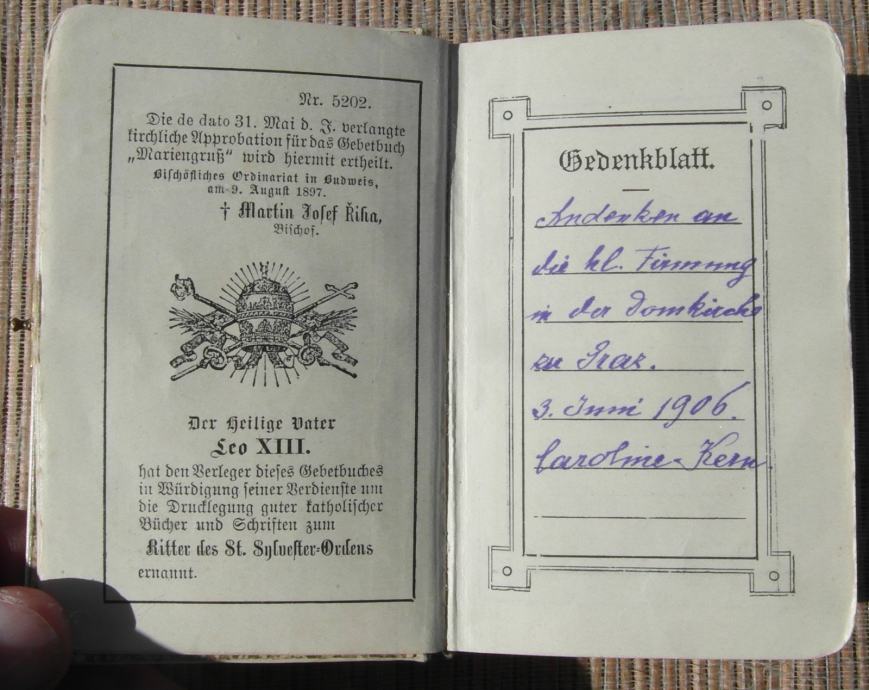 Nr. 5202.
Die de dato 31. Mai d. J. verlangte
kirchliche Approbation für das Gebetbuch
„Mariengruß“ wird hiermit ertheilt.
Bischöfliches Ordinariat in Budweis,
am 9. August 1897.
† Martin Josef Řiha,
Bischof.
Der Heilige Vater
Leo XIII.
hat den Verleger dieses Gebetbuches
in Würdigung seiner Verdienste um
die Drucklegung guter katholischer
Bücher und Schriften zum
Ritter des St. Sylvester-Ordens
ernannt.
Gedenkblatt.
Andenken an
die hl. Firmung
in der Domkirche
zu Graz.
3. Juni 1906.
Caroline Kern.